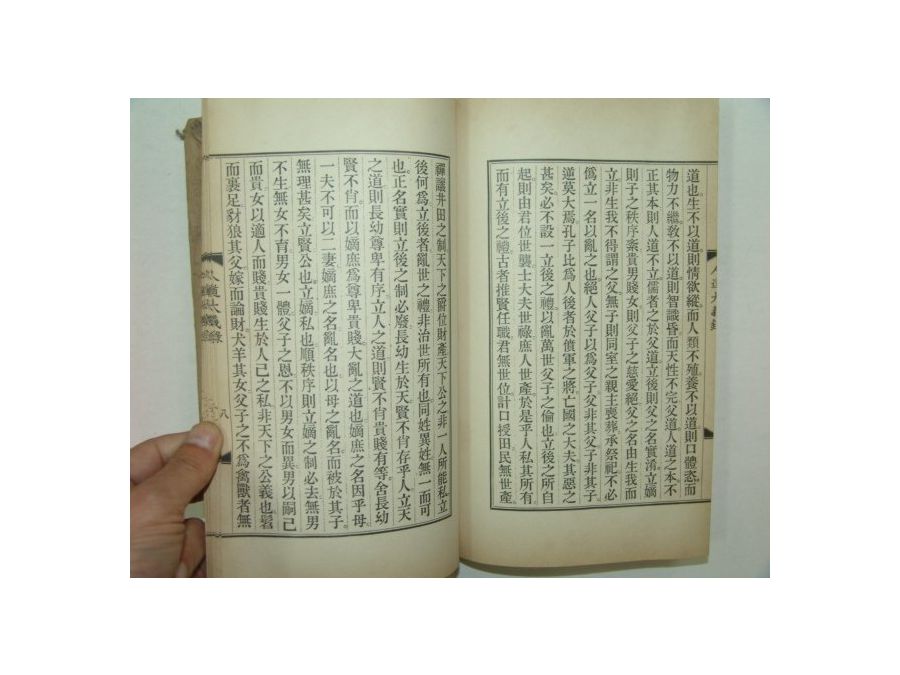 道也。生不以道則情欲縱。而人類不殖。養不以道則口體恣。而
物力不繼。敎不以道則智識昏。而天性不完。父道人道之本。不
正其本則人道不立。儒者之於父道。立後則父之名實淆。立嫡
則子之秩序紊。貴男賤女則父子之慈愛絕。父之名由生我而
立。非生我不得謂之父。無子則同室之親主喪葬承祭祀。不必
爲立一名以亂之也。絕人父子以爲父子。父非其父。子非其子。
逆莫大焉。孔子比爲人後者於僨軍之將。亡國之大夫。其惡之
甚矣。必不設一立後之禮。以亂萬世父子之倫也。立後之所自
起。則由君位世襲。士大夫世祿。庶人世產。於是乎人私其所有。
而有立後之禮。古者推賢任職。君無世位。計口授田。民無世產。
禪讓井田之制。天下之爵位財產。天下公之。非一人所能私。立
後何爲。立後者亂世之禮。非治世所有也。同姓異姓。無一而可
也。正名實則立後之制必廢。長幼生於天。賢不肖存乎人。立天
之道則長幼尊卑有序。立人之道則賢不肖貴賤有等。舍長幼
賢不肖。而以嫡庶爲尊卑貴賤。大亂之道也。嫡庶之名因乎母。
一夫不可以二妻。嫡庶之名。亂名也。以母之亂名。而被於其子。
無理甚矣。立賢公也。立嫡私也。順秩序則立嫡之制必去。無男
不生。無女不育。男女一體。父子之恩。不以男女而異。男以嗣己
而貴。女以適人而賤。貴賤生於人己之私。非天下之公義也。髡
而裹足。豺狼其父。嫁而論財。犬羊其女。父子之不爲禽獸者無
人道大義錄
人道大義錄
八